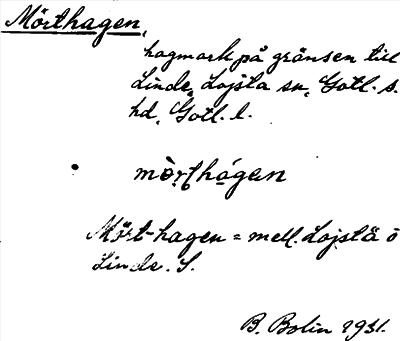 Mörthagen,
hagmark på gränsen till
Linde, Lojsta sn, Gotl. s.
hd, Gotl. l.
mò̀rthágen
Mört-hagen = mell. Lojstä ō
Linde. S.
B. Bolin 1931.